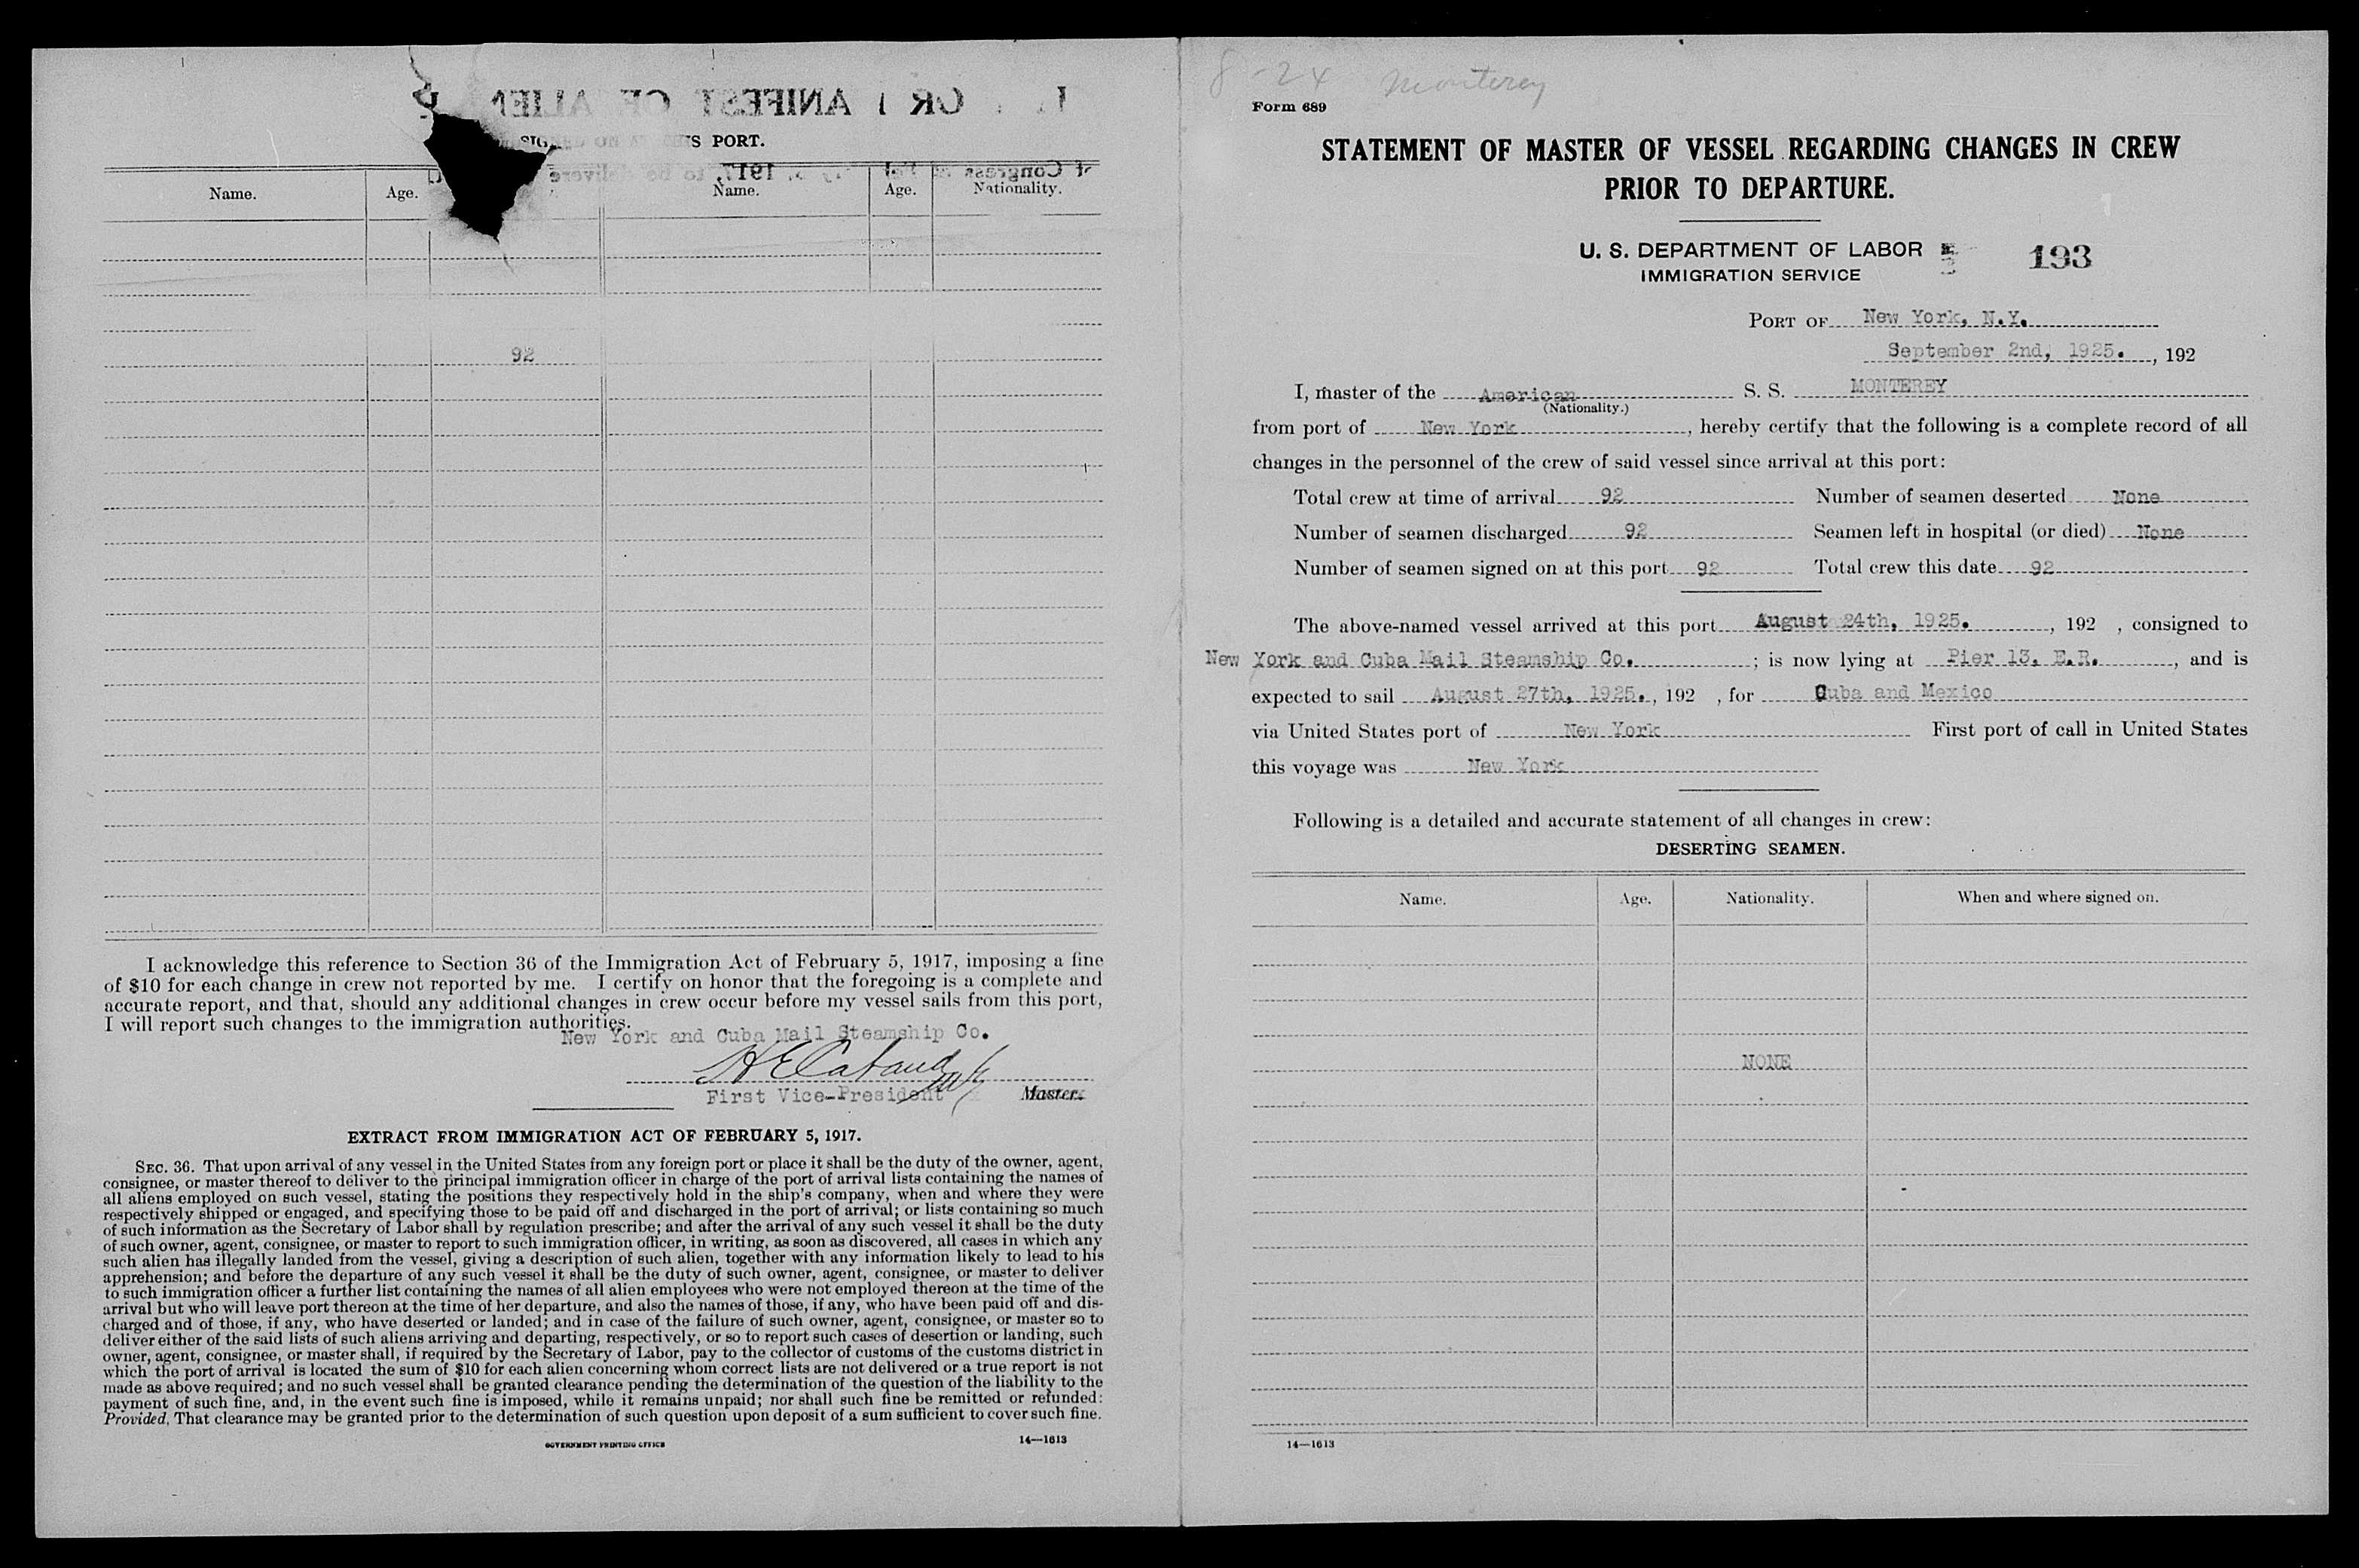 S PORT.
Name. Age. Name. Age. Nationality.
92
I acknowledge this reference to Section 36 of the Immigration Act of February 5, 1917, imposing a fine
of $10 for each change in crew not reported by me. I certify on honor that the foregoing is a complete and
accurate report, and that, should any additional changes in crew occur before my vessel sails from this port,
I will report such changes to the immigration authorities.
New York and Cuba Mail Steamship Co.
First Vice-President Master.
EXTRACT FROM IMMIGRATION ACT OF FEBRUARY 5, 1917.
SEC. 36. That upon arrival of any vessel in the United States from any foreign port or place it shall be the duty of the owner, agent,
consignee, or master thereof to deliver to the principal immigration officer in charge of the port of arrival lists containing the names of
all aliens employed on such vessel, stating the positions they respectively hold in the ship's company, when and where they were
respectively shipped or engaged, and specifying those to be paid off and discharged in the port of arrival; or lists containing so much
of such information as the Secretary of Labor shall by regulation prescribe; and after the arrival of any such vessel it shall be the duty
of such owner, agent, consignee, or master to report to such immigration officer, in writing, as soon as discovered, all cases in which any
such alien has illegally landed from the vessel, giving a description of such alien, together with any information likely to lead to his
apprehension; and before the departure of any such vessel it shall be the duty of such owner, agent, consignee, or master to deliver
to such immigration officer a further list containing the names of all alien employees who were not employed thereon at the time of the
arrival but who will leave port thereon at the time of her departure, and also the names of those, if any, who have been paid off and dis-
charged and of those, if any, who have deserted or landed; and in case of the failure of such owner, agent, consignee, or master so to
deliver either of the said lists of such aliens arriving and departing, respectively, or so to report such cases of desertion or landing, such
owner, agent, consignee, or master shall, if required by the Secretary of Labor, pay to the collector of customs of the customs district in
which the port of arrival is located the sum of $10 for each alien concerning whom correct lists are not delivered or a true report is not
made as above required; and no such vessel shall be granted clearance pending the determination of the question of the liability to the
payment of such fine, and, in the event such fine is imposed, while it remains unpaid; nor shall such fine be remitted or refunded:
Provided, That clearance may be granted prior to the determination of such question upon deposit of a sum sufficient to cover such fine.
GOVERNMENT PRINTING OFFICE 14—1613
8-24 Monterey
Form 689
STATEMENT OF MASTER OF VESSEL REGARDING CHANGES IN CREW
PRIOR TO DEPARTURE.
U. S. DEPARTMENT OF LABOR 193
IMMIGRATION SERVICE
PORT OF New York, N.Y.
September 2nd, 1925. , 192
I, master of the American S. S. MONTEREY
(Nationality.)
from port of New York , hereby certify that the following is a complete record of all
changes in the personnel of the crew of said vessel since arrival at this port:
Total crew at time of arrival 92 Number of seamen deserted None
Number of seamen discharged 92 Seamen left in hospital (or died) None
Number of seamen signed on at this port 92 Total crew this date 92
The above-named vessel arrived at this port August 24th, 1925. , 192 , consigned to
New York and Cuba Mail Steamship Co. ; is now lying at Pier 13, E.R. , and is
expected to sail August 27th, 1925. , 192 , for Cuba and Mexico
via United States port of New York First port of call in United States
this voyage was New York
Following is a detailed and accurate statement of all changes in crew:
DESERTING SEAMEN.
Name. Age. Nationality. When and where signed on.
NONE
14—1613